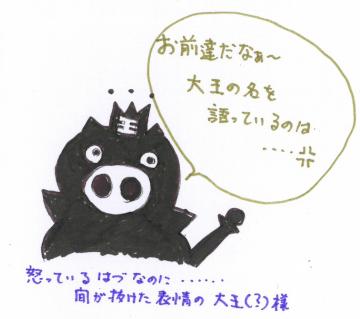 お前達だなぁ～
大王の名を
語っているのは
‥‥
王
怒っているはづなのに ‥‥‥
間が抜けた表情の大王(?)様